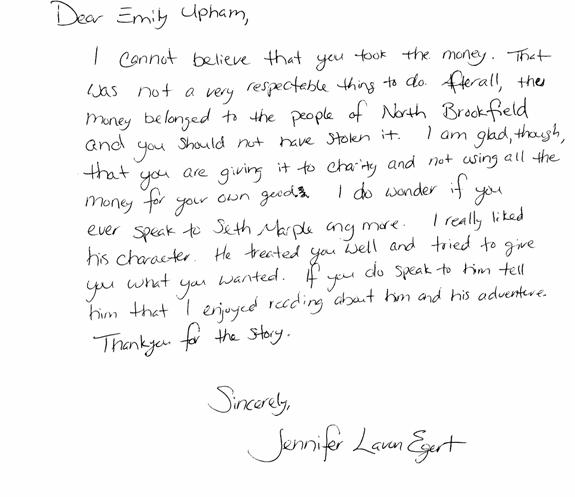 Dear Emily Upham,
I cannot believe that you took the money. That
was not a very respectable thing to do. Afterall, the
money belonged to the people of North Brookfield
and you should not have stolen it. I am glad, though,
that you are giving it to charity and not using all the
money for your own good. I do wonder if you
ever speak to Seth Marple any more. I really liked
his character. He treated you well and tried to give
you what you wanted. If you do speak to him tell
him that I enjoyed reading about him and his adventure.
Thankyou for the story.
Sincerely,
Jennifer Lavan Egert